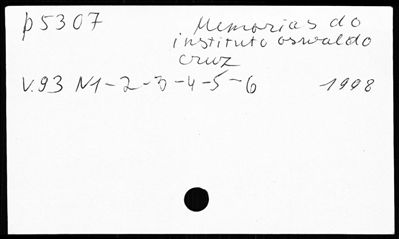 p5307 Memorias do
instituto oswaldo
cruz
V.93 N1-2-3-4-5-6 1998